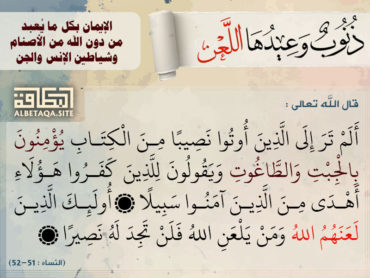 ذُنُوبٌ وَعِيدُهَا اللَّعْن
الإيمان بكل ما يُعبد
من دون الله من الأصنام
وشياطين الإنس والجن
البطاقة
ALBETAQA.SITE
قال الله تعالى :
أَلَمْ تَرَ إِلَى الَّذِينَ أُوتُوا نَصِيبًا مِنَ الْكِتَابِ يُؤْمِنُونَ
بِالْجِبْتِ وَالطَّاغُوتِ وَيَقُولُونَ لِلَّذِينَ كَفَرُوا هَؤُلَاءِ
أَهْدَى مِنَ الَّذِينَ آمَنُوا سَبِيلًا ۝ أُولَئِكَ الَّذِينَ
لَعَنَهُمُ اللهُ وَمَنْ يَلْعَنِ اللهُ فَلَنْ تَجِدَ لَهُ نَصِيرًا ۝
(النساء : 51–52)